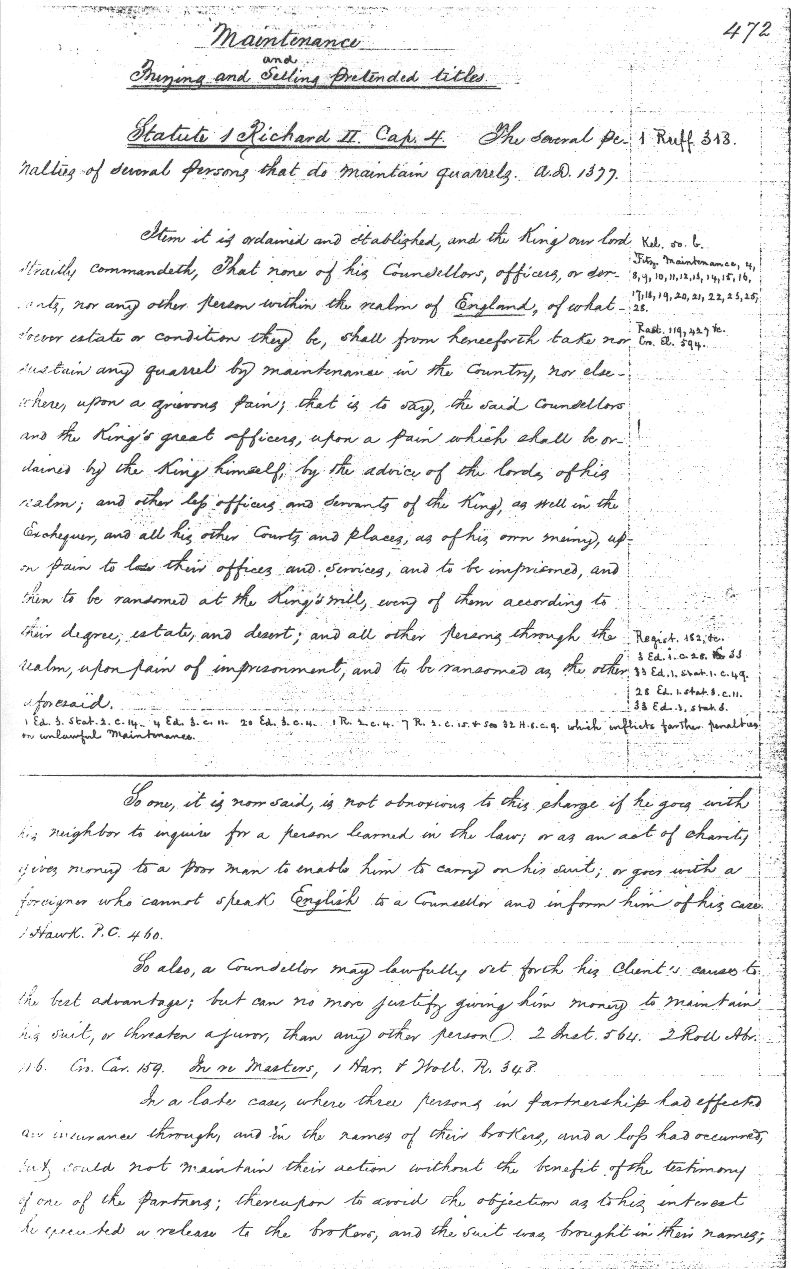 472
Maintenance
and
Buying and Selling pretended titles.
Statute 1 Richard II. Cap. 4. The several pe-
nalties of several persons that do maintain quarrels. A.D. 1377.
1 Ruff 343.
Item it is ordained and stablished, and the King our lord
straitly commandeth, That none of his Counsellors, officers, or ser-
vants, nor any other person within the realm of England, of what-
soever estate or condition they be, shall from henceforth take nor
sustain any quarrel by maintenance in the Country, nor else-
where, upon a grievous pain; that is to say, the said Counsellors
and the King's great officers, upon a pain which shall be or-
dained by the King himself, by the advice of the lords of his
realm; and other less officers and servants of the King, as well in the
Exchequer, and all his other Courts and places, as of his own meiny, up-
on pain to lose their offices and services, and to be imprisoned, and
then to be ransomed at the King's will, every of them according to
their degree, estate, and desert; and all other persons through the
realm, upon pain of imprisonment, and to be ransomed as the other
aforesaid.
Kel. 50. b.
Fitz. Maintenance, 4,
8, 9, 10, 11, 12, 13, 14, 15, 16,
17, 18, 19, 20, 21, 22, 23, 25,
28.
Rast. 119, 427 &c.
Cro. El. 594.
Regist. 182, &c.
3 Ed. 1. c. 28. & 33
33 Ed. 1. Stat. 1. c. 49.
28 Ed. 1. stat. 3. c. 11.
33 Ed. 1. stat. 3.
1 Ed. 3. Stat. 2. c. 14. 4 Ed. 3. c. 11. 20 Ed. 3. c. 4. 1 R. 2. c. 4. 7 R. 2. c. 15. & See 32 H. 8. c. 9. which inflicts farther penalties
on unlawful Maintenance.
So one, it is now said, is not obnoxious to this charge if he goes with
his neighbor to inquire for a person learned in the law; or as an act of charity
gives money to a poor man to enable him to carry on his suit; or goes with a
foreigner who cannot speak English to a Counsellor and inform him of his case.
1 Hawk. P.C. 460.
So also, a Counsellor may lawfully set forth his client's causes to
the best advantage; but can no more justify giving him money to maintain
his suit, or threaten a juror, than any other person. 2 Inst. 564. 2 Roll Abr.
116. Cro. Car. 159. In re Masters, 1 Har. & Woll. R. 348.
In a late case, where three persons in partnership had effected
an insurance through, and in the names of their brokers, and a loss had occurred,
but could not maintain their action without the benefit of the testimony
of one of the partners; thereupon to avoid the objection as to his interest
he executed a release to the brokers, and the suit was brought in their names;